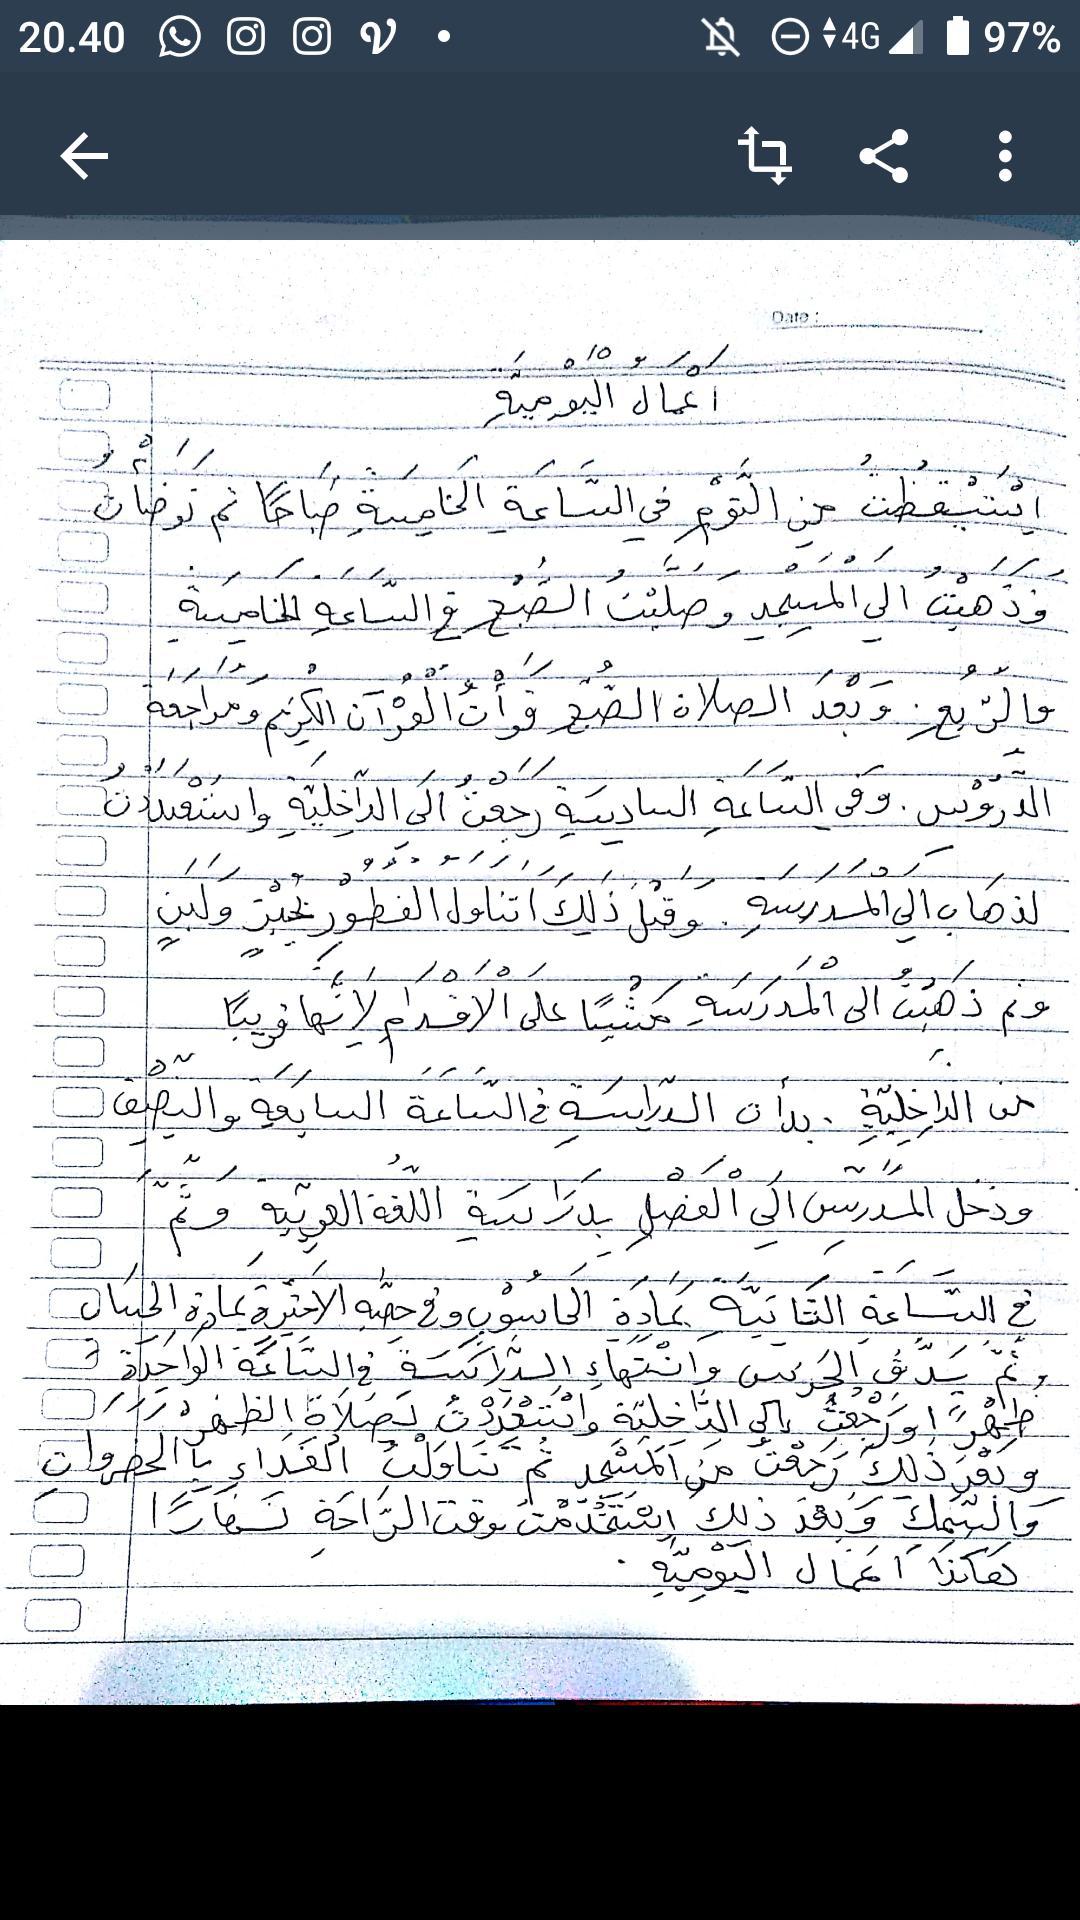 20.40
4G 97%
Date :
أعمال اليومية
استيقظت من النوم في الساعة الخامسة صباحا ثم توضأت
وذهبت الى المسجد وصليت الصبح في الساعة الخامسة
والربع . وبعد الصلاة الصبح قرأت القرآن الكريم ومراجعة
الدروس . وفى الساعة السادسة رجعت الى الداخلية واستعددت
لذهاب الى المدرسة . وقبل ذلك اتناول الفطور بخبز ولبن
وثم ذهبت الى المدرسة مشيا على الاقدام لانها قريبا
من الداخلية . بدأت الدراسة في الساعة السابعة والنصف
ودخل المدرس الى الفصل بدراسة اللغة العربية وثم
في الساعة الثانية بمادة الحاسوب وفي حصة الاخيرة بمادة
وثم يدق الجرس وانتهاء الدراسة في الساعة الواحدة
ظهرا ورجعت إلى الداخلية واستعددت بصلاة الظهر
وبعد ذلك رجعت من المسجد ثم تناولت الغداء باالخضروات
والسمك وبعد ذلك استخدمت بوقت الراحة
هاكذا اعمال اليومية .